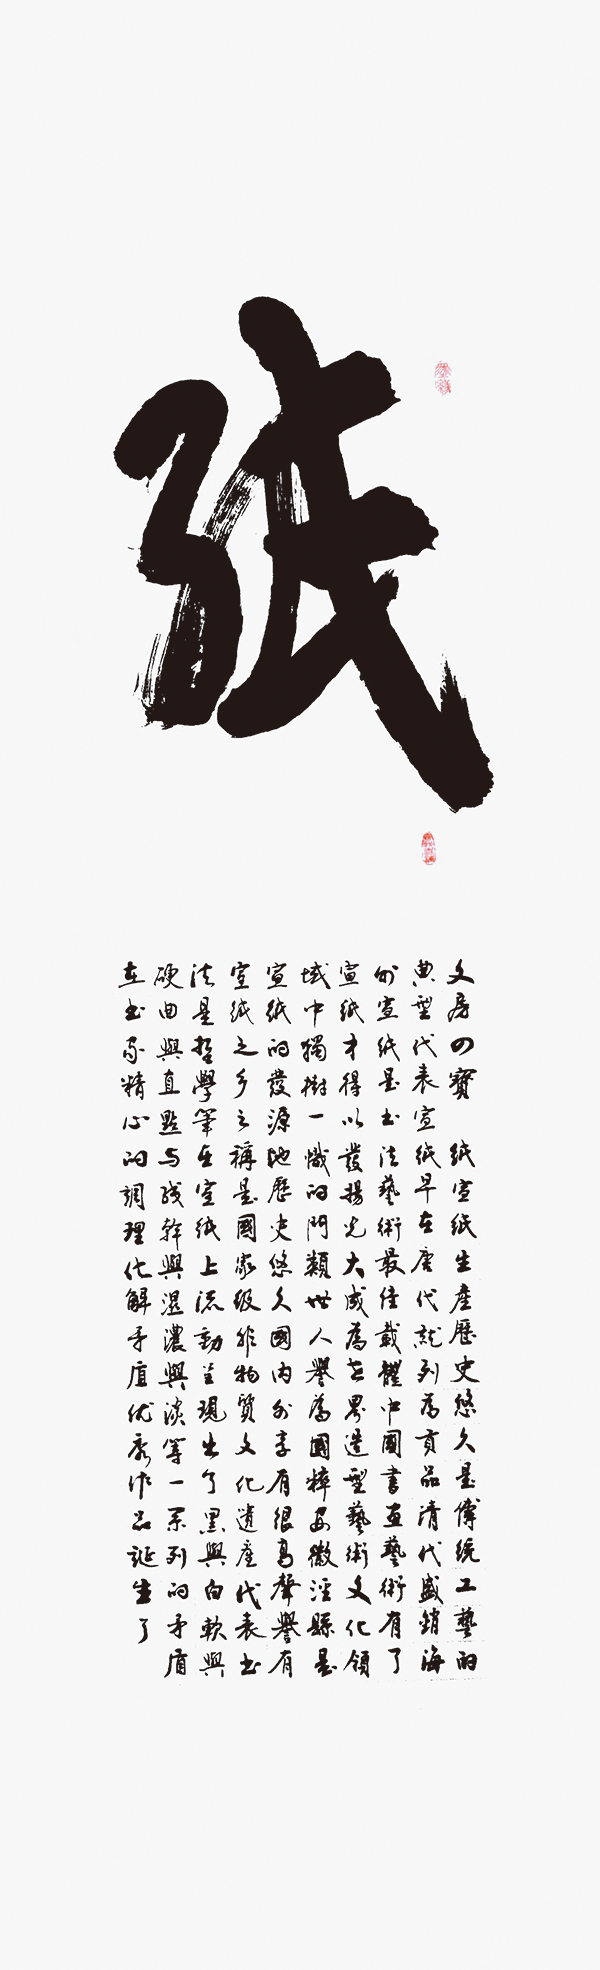 紙
文房四寶 紙宣紙生產歷史悠久是傳統工藝的
典型代表宣紙早在唐代就列為貢品清代盛銷海
外宣紙是書法藝術最佳載體中國書畫藝術有了
宣紙才得以發揚光大成為世界造型藝術文化領
域中獨樹一幟的門類世人譽為國粹安徽涇縣是
宣紙的發源地歷史悠久國內外享有很高聲譽有
宣紙之鄉之稱是國家級非物質文化遺產代表書
法是哲學筆在宣紙上流動呈現出了黑與白軟與
硬曲與直點与线幹與濕濃與淡等一系列的矛盾
在書家精心的調理化解矛盾优秀作品誕生了